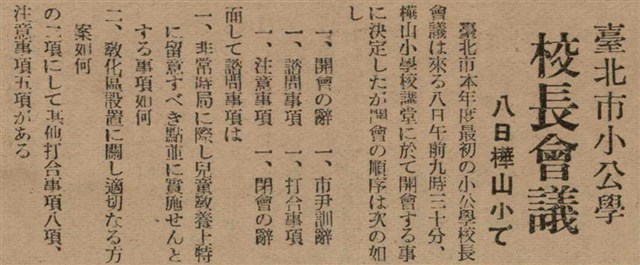 臺北市小公學
校長會議
八日樺山小で
臺北市本年度最初の小公學校長
會議は來る八日午前九時三十分、
樺山小學校講堂に於て開會する事
に決定したが開會の順序は次の如
し
一、開會の辭　一、市尹訓辭
一、諮問事項　一、打合事項
一、注意事項　一、閉會の辭
而して諮問事項は
一、非常時局に際し兒童敎養上特
に留意すべき點並に實施せんと
する事項如何
二、敎化區設置に關し適切なる方
案如何
の二項にして其他打合事項八項、
注意事項五項がある